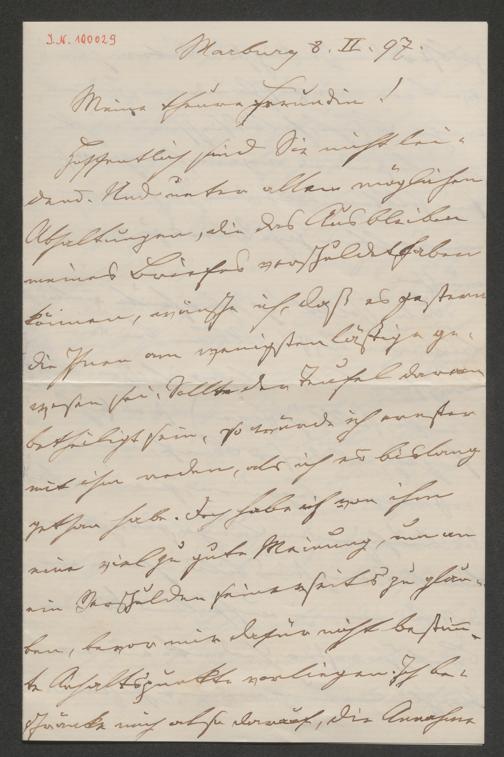 J.N. 100029
Marburg 8. II. 97.
Meine theure Freundin!
Hoffentlich sind Sie nicht lei-
dend. Und unter allen möglichen
Abhaltungen, die das Ausbleiben
meines Briefes verschuldet haben
können, wünsche ich, daß es gestern
die Ihnen am wenigsten lästige ge-
wesen sei. Sollte der Teufel daran
betheiligt sein, so würde ich ernster
mit ihm reden, als ich es bislang
gethan habe. Doch habe ich von ihm
eine viel zu gute Meinung, um an
ein Verschulden seinerseits zu glau-
ben, bevor mir dafür nicht bestimm-
te Anhaltspunkte vorliegen. Ich be-
schränke mich also darauf, die Annahme